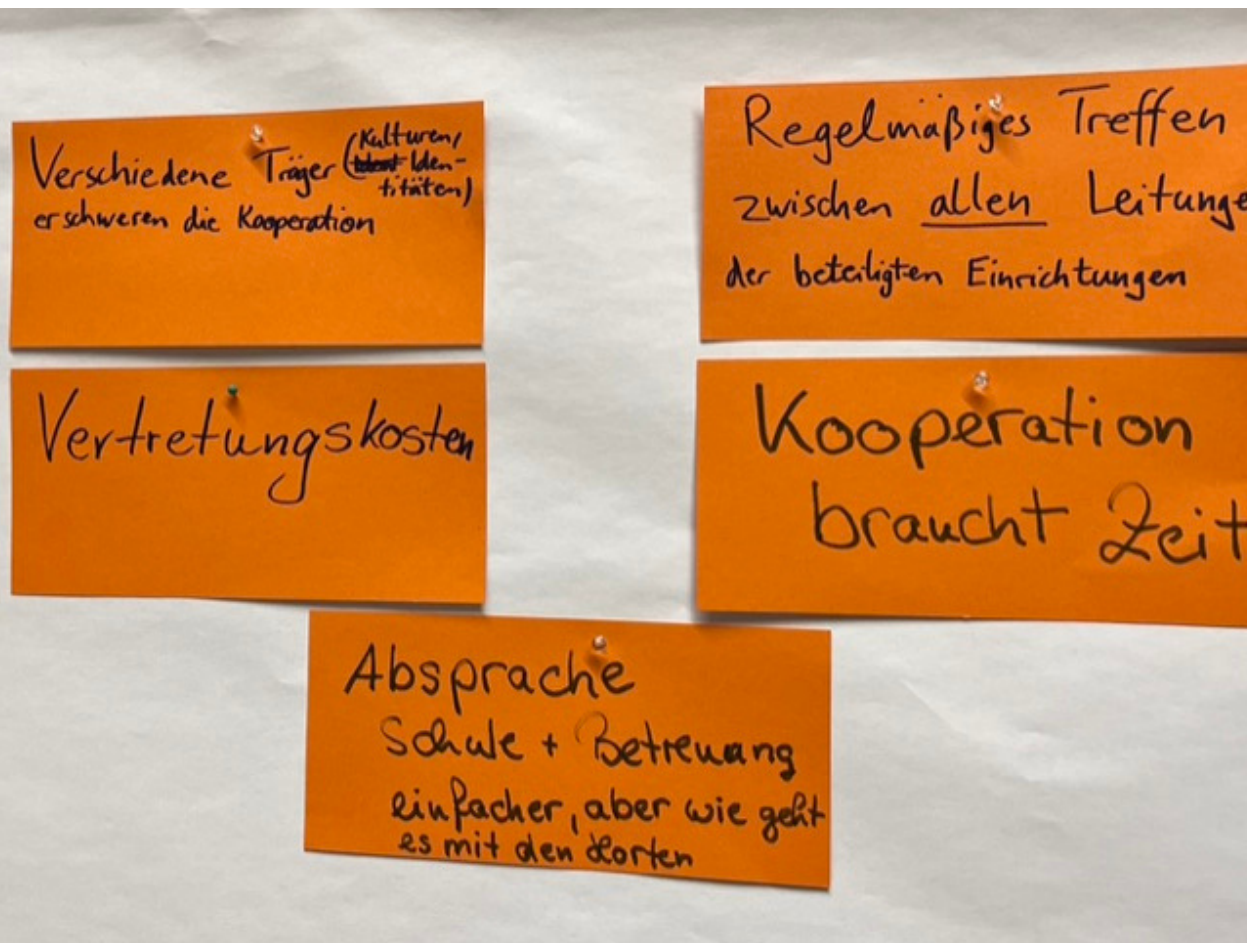 Verschiedene Träger (Kulturen/
Iden-
titäten)
erschweren die Kooperation
Regelmäßiges Treffen
zwischen allen Leitunge
der beteiligten Einrichtungen
Vertretungskosten
Kooperation
braucht Zeit
Absprache
Schule + Betreuung
einfacher, aber wie geht
es mit den Horten